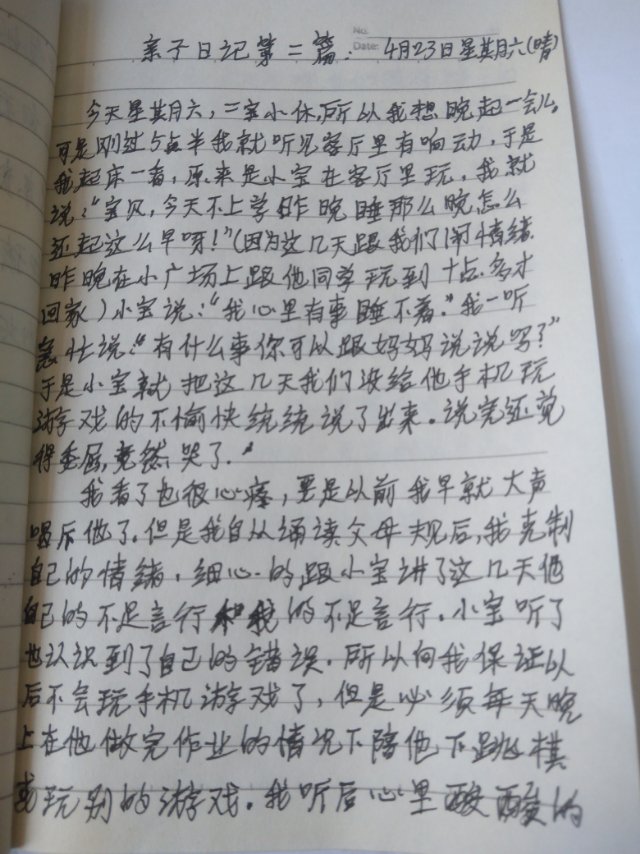 No.
Date:
亲子日记第二篇: 4月23日星其月六(晴)
今天星其月六,二宝小休,所以我想晚起一会儿。
可是刚过5点半我就听见客厅里有响动,于是
我起床一看,原来是小宝在客厅里玩,我就
说:"宝贝,今天不上学昨晚睡那么晚怎么
还起这么早呀!"(因为这几天跟我们闹情绪
昨晚在小广场上跟他同学玩到十点多才
回家)小宝说:"我心里有事睡不着。"我一听
急忙说:"有什么事你可以跟妈妈说说吗?"
于是小宝就把这几天我们没给他手机玩
游戏的不愉快统统说了出来。说完还觉
得委屈,竟然哭了.
我看了也很心疼,要是以前我早就大声
喝斥他了.但是我自从诵读父母规后,我克制
自己的情绪.细心的跟小宝讲了这几天他
自己的不足言行和我的不足言行.小宝听了
也认识到了自己的错误.所以向我保证以
后不会玩手机游戏了,但是必须每天晚
上在他做完作业的情况下陪他下跳棋
或玩别的游戏.我听后心里酸酸的